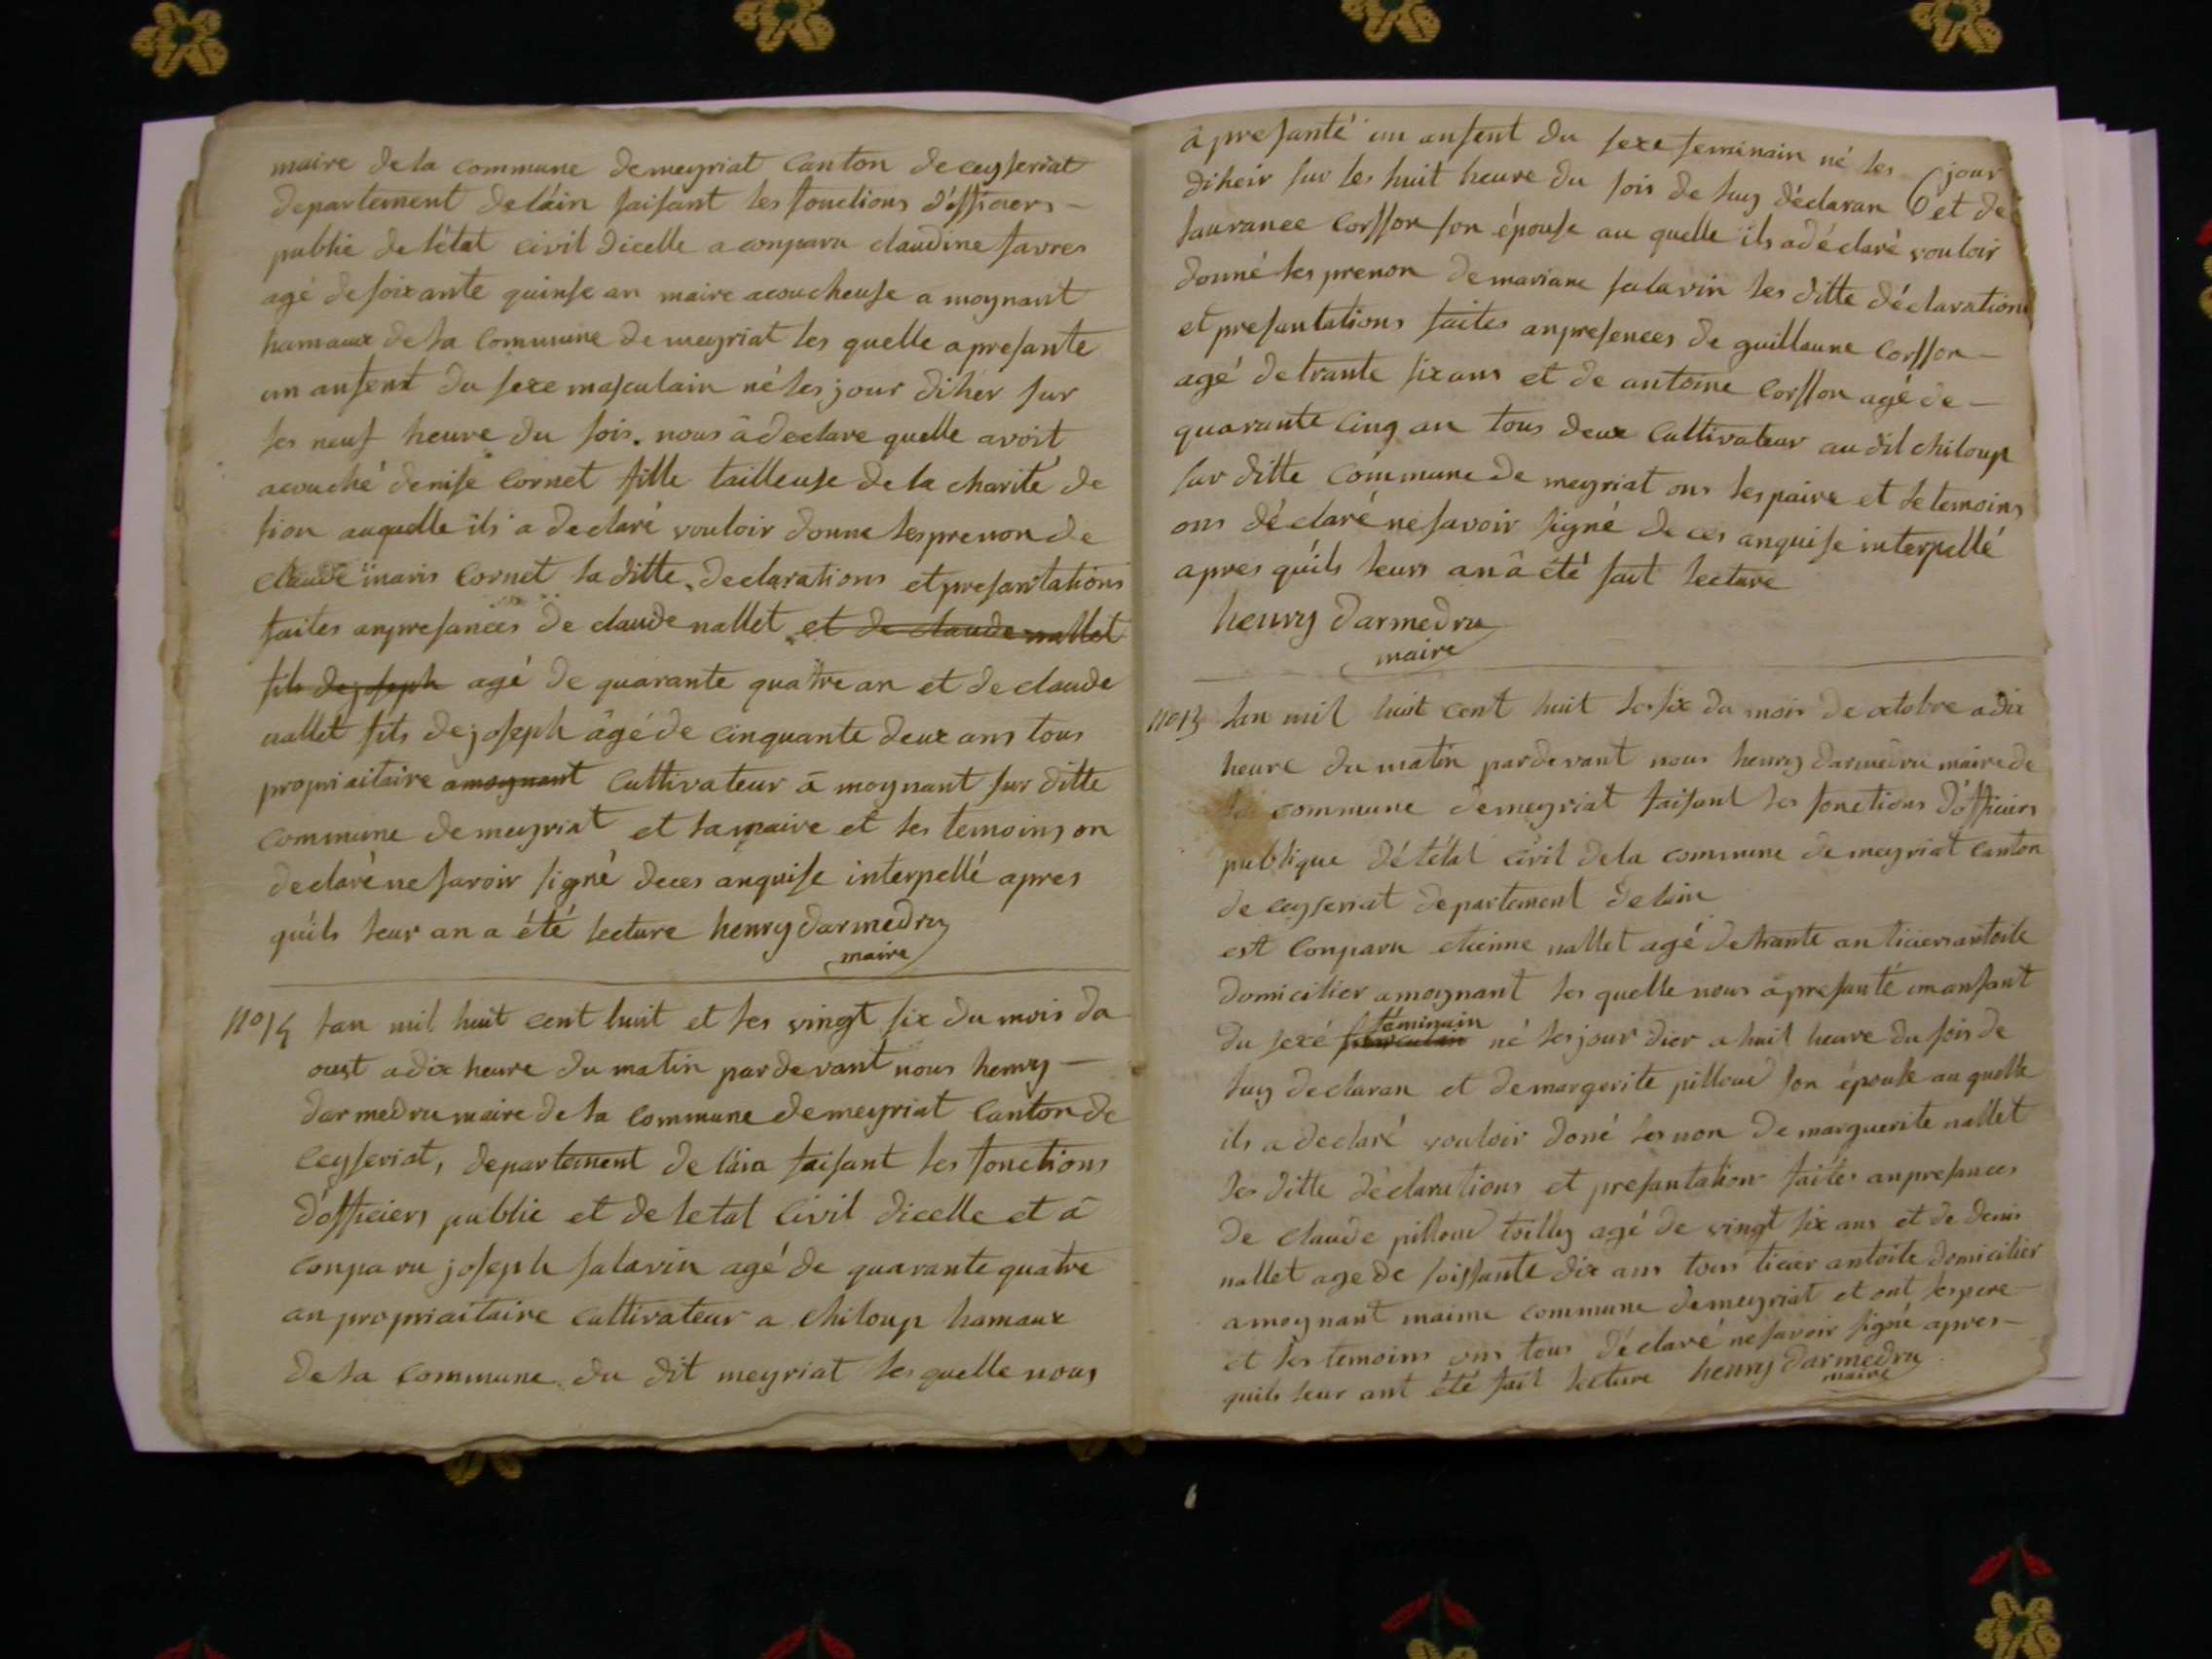 maire de la commune de meyriat Canton de ceyseriat
departement de láin faisant les fonctions d'éfficiers
publie de létat civil dicelle a conparu claudine favres
agé de soixante quinse an maire acoucheuse a moynant
hamaux de la Commune de meyriat les quelle apresante
un anfent du sexe masculain né les jour diher sur
les neuf heure du sois. nous â declare quelle avoit
acouché denise Cornet fille tailleuse de la charité de
lion auquelle ils a declaré vouloir donne lesprenon de
claude maris Cornet la ditte declarations et presantations
faites anpresances de claude nallet et de claude nallet
fils de joseph agé de quarante quatre an et de claude
nallet fils de joseph âgé de Cinquante deux ans tous
propriaitaire amoynant Cultivateur â moynant sur ditte
Commune de meyriat et la maire et les temoins on
declaré ne savoir signé deces anquise interpellé apres
quils leur an a été lecture henry darmedru
maire
n° 14 lan mil huit cent huit et les vingt six du mois da
oust a dix heure du matin par devant nous henry
darmedru maire de la Commune de meyriat Canton de
Ceyseriat, departement de láin faisant les fonctions
d'officiers publie et de letat Civil dicelle et â
Conparu joseph salavin agé de quarante quatre
an propriaitaire Cultivateur a chiloup hamaux
de la Commune du dit meyriat les quelle nous
â presanté un anfent du sexe feminain né les jour
diheir sur les huit heure du sois de luy déclaran et de
lauranee Corsson son épouse au quelle ils a déclaré vouloir
donné les prenon de mariane salavin les ditte déclarations
et presantations faites anpresences de guillaune Corsson
agé de trante six ans et de antoine Corsson agé de
quarante Cinq an tous deux Cultivateur au dit chiloup
sur ditte Commune de meyriat ons les paire et le temoins
ons déclaré ne savoir signé de ces anquise interpellé
apres quils leurs an â été fait lecture
henry darmedru
maire
n° 15 lan mil huit cent huit les six du mois de octobre a dix
heure du matin pardevant nous henry darmedru maire de
la commune de meyriat faisant les fonctions d'officiers
publique dé létat civil dela commune de meyriat Canton
de ceyseriat departement de lain
est Conparu etienne nallet agé de trante an ticier antoile
domicilier amoynant les quelle nous â presanté un anfant
du sexé féminain né les jour dier a huit heure du sois de
luy declaran et de margerite pilloud son épouse au quelle
ils a declaré vouloir doné les non de marguerite nallet
les ditte déclarations et presantation faites anpresances
de claude pilloud agé de vingt six ans et de denis
nallet age de soissante dix ans tous ticier antoile domicilier
amoynant maime commune de meyriat et ont les pere
et les temoins ons tous déclaré ne savoir signé apres
quils leur ant été fait lecture henry darmedru
maire